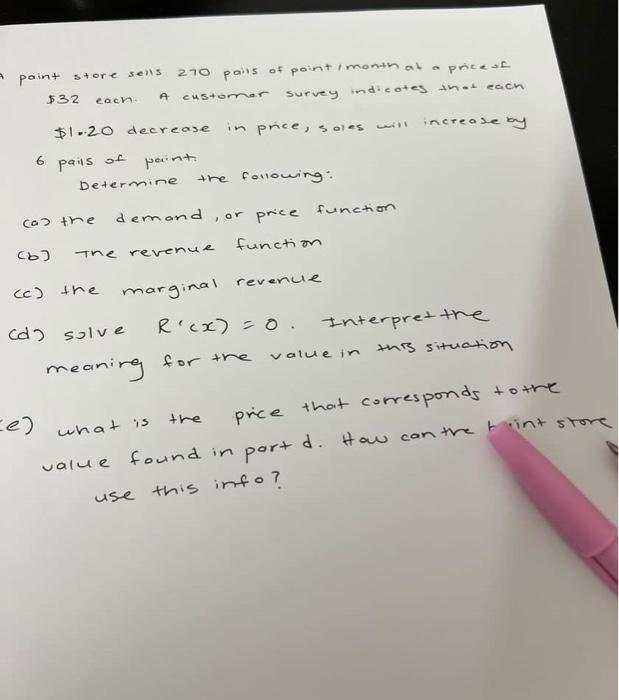 A paint store sells 270 pails of paint/month at a price of
$32 each. A customer survey indicates that each
$1.20 decrease in price, sales will increase by
6 pails of paint.
Determine the following:
(a) the demand, or price function
(b) The revenue function
(c) the marginal revenue
(d) solve R'(x) = 0. Interpret the
meaning for the value in this situation
(e) what is the price that corresponds to the
value found in part d. How can the paint store
use this info?